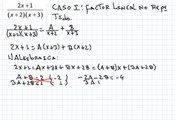 2x+1
(x+2)(x+3)
CASO I: FACTOR LINEAL NO REPE
TIDO.
2x+1 / (x+2)(x+3) = A / x+2 + B / x+3
2x+1 = A(x+3) + B(x+2)
1) ALGEBRAICA:
2x+1 = Ax+3A+Bx+2B = (A+B)x+(3A+2B)
A+B=2 (-2) -2A-2B=-4
3A+2B=1